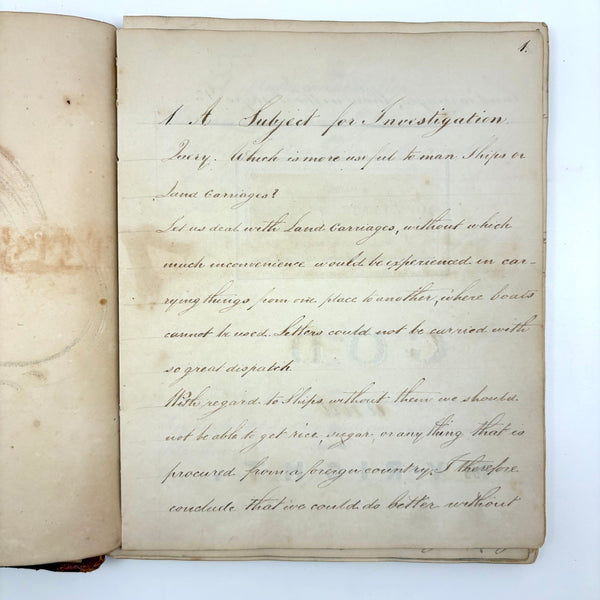 1.
1 A Subject for Investigation
Query. Which is more useful to man Ships or
Land Carriages?
Let us deal with Land Carriages, without which
much inconvenience would be experienced in car-
rying things from one place to another, where boats
cannot be used. Letters could not be carried with
so great dispatch
With regard to Ships, without them we should
not be able to get rice, sugar, or any thing that is
procured from a foreign country. I therefore
conclude that we could do better without